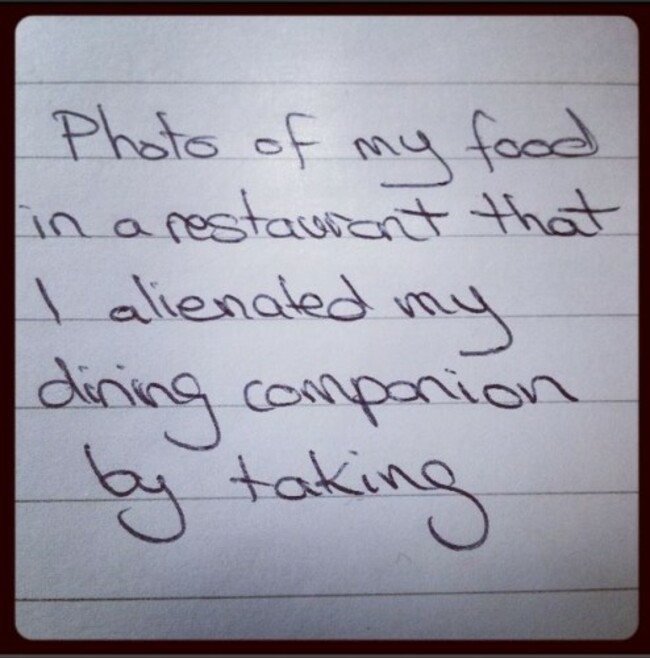 Photo of my food
in a restaurant that
I alienated my
dining companion
by taking